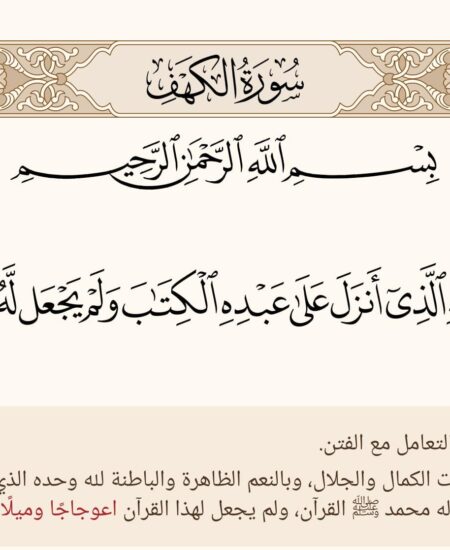 سُورَةُ الكَهْفِ
بِسْمِ ٱللَّهِ ٱلرَّحْمَٰنِ ٱلرَّحِيمِ
ٱلَّذِىٓ أَنزَلَ عَلَىٰ عَبْدِهِ ٱلْكِتَٰبَ وَلَمْ يَجْعَل لَّهُ
لتعامل مع الفتن.
ت الكمال والجلال، وبالنعم الظاهرة والباطنة لله وحده الذي
له محمد ﷺ القرآن، ولم يجعل لهذا القرآن اعوجاجًا وميلًا